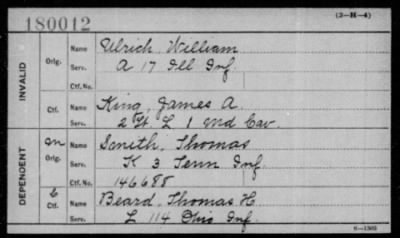 180012
(3-H-4)
INVALID
Orig.
Name Ulrich, William
Serv. A 17 Ill Inf.
Ctf. No.
Ctf.
Name King, James A.
Serv. 2 Lt. L 1 Md Cav.
DEPENDENT
Orig.
Name Smith, Thomas
Serv. K 3 Tenn Inf.
Ctf. No. 146688
Ctf.
Name Beard, Thomas H.
Serv. L 114 Ohio Inf.
6-1305